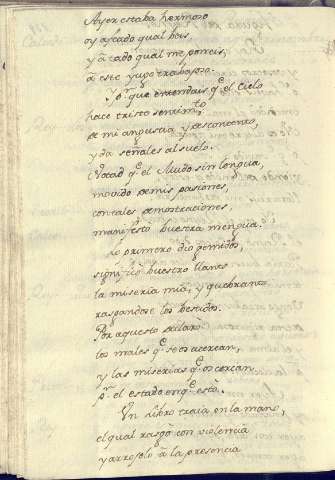 Ayer estaba hermoso
oy afeado qual beis,
y atado qual me poneis,
â este yugo trabajoso.
Y pr. que entendais q.e el cielo
hace triste sentim.to
de mi angustia y descontento,
y da señales al suelo.
Notad q.e el Mudo sin lengua,
movido de mis pasiones,
con tales demostraciones,
manifesto buestra mengua.
Lo primero dio gemidos,
significò buestro llanto
la miseria mia, y quebranto
rasgandose los bestidos.
Por aquesto declarò
los males q.e se os acercan,
y las miserias q.e os cercan
pr. el estado en q.e estò.
Un libro traia en la mano,
el qual rasgò con violencia
y arrojolo â la presencia